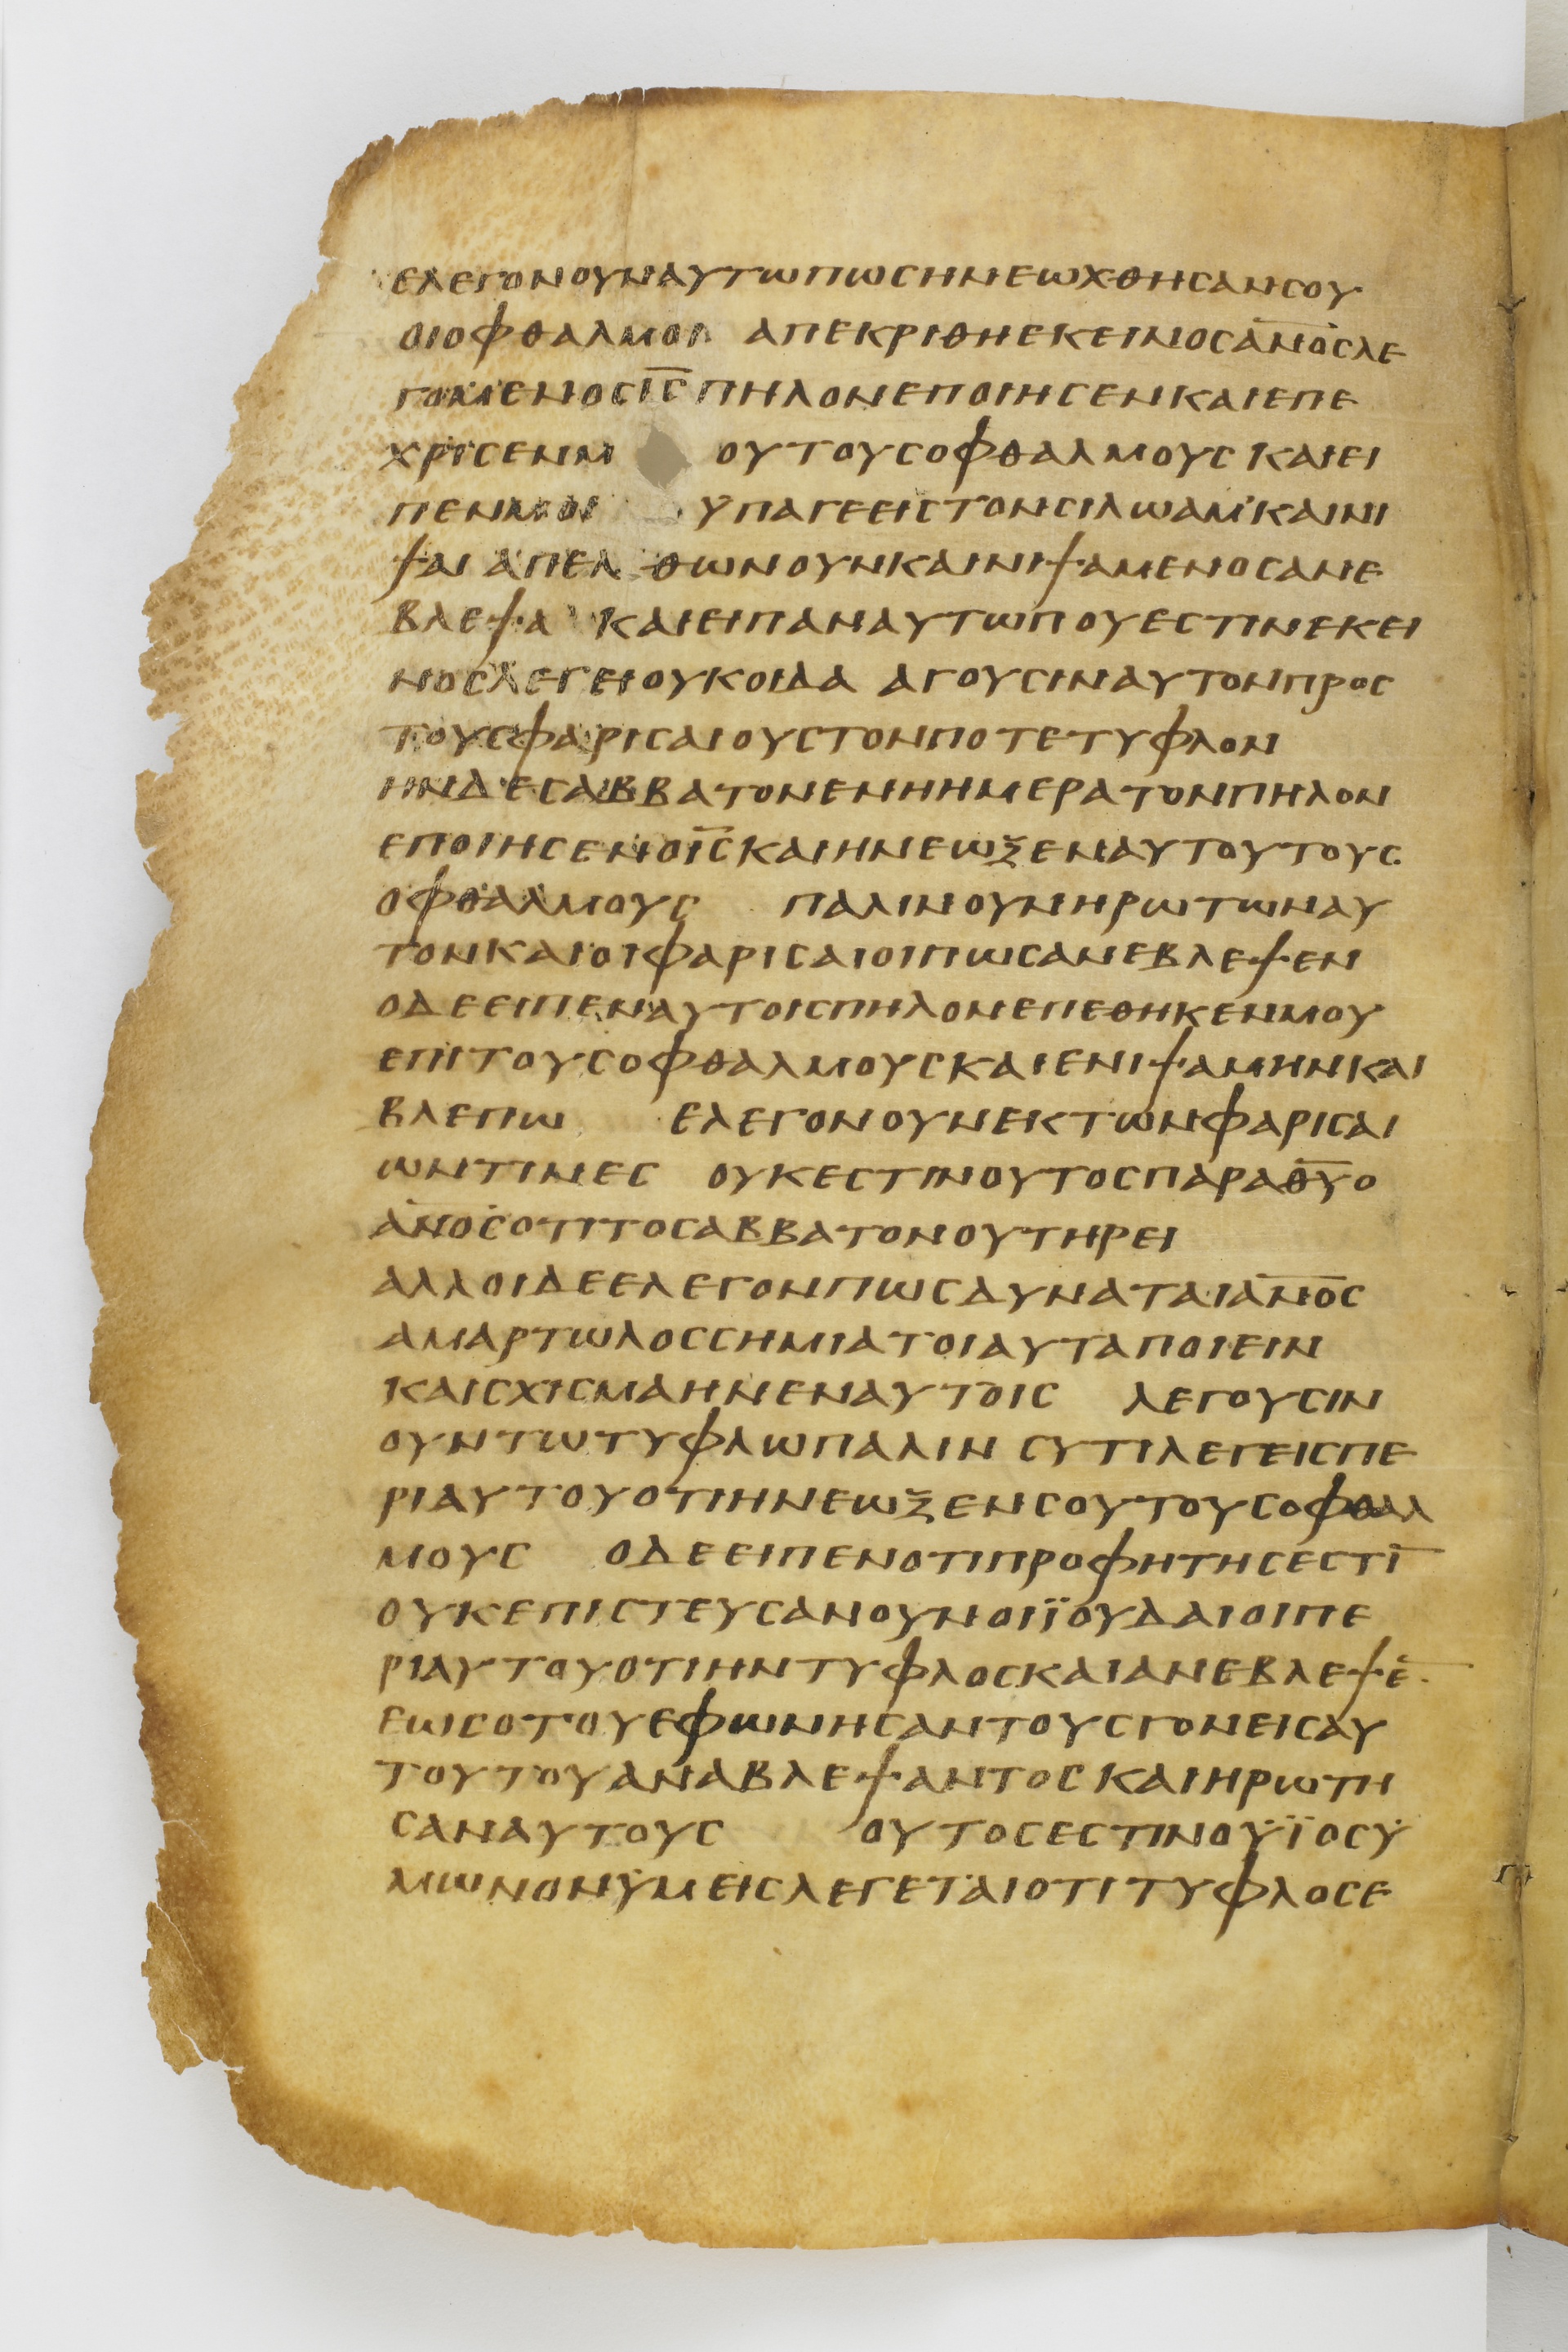 ΕΛΕΓΟΝΟΥΝΑΥΤΩΠΩϹΗΝΕΩΧΘΗϹΑΝϹΟΥ
ΟΙΟΦΘΑΛΜΟΙ ΑΠΕΚΡΙΘΗΕΚΕΙΝΟϹΑ̅Ν̅Ο̅Ϲ̅ΛΕ
ΓΟΜΕΝΟϹΙ̅Ϲ̅ΠΗΛΟΝΕΠΟΙΗϹΕΝΚΑΙΕΠΕ
ΧΡΙϹΕΝΜ ΟΥΤΟΥϹΟΦΘΑΛΜΟΥϹΚΑΙΕΙ
ΠΕΝΜΟΙ ΫΠΑΓΕΕΙϹΤΟΝϹΙΛΩΑΜ'ΚΑΙΝΙ
ΨΑΙ ΑΠΕΛ ΘΩΝΟΥΝΚΑΙΝΙΨΑΜΕΝΟϹΑΝΕ
ΒΛΕΨΑ ΚΑΙΕΙΠΑΝΑΥΤΩΠΟΥΕϹΤΙΝΕΚΕΙ
ΝΟϹΛΕΓΕΙΟΥΚΟΙΔΑ ΑΓΟΥϹΙΝΑΥΤΟΝΠΡΟϹ
ΤΟΥϹΦΑΡΙϹΑΙΟΥϹΤΟΝΠΟΤΕΤΥΦΛΟΝ
ΗΝΔΕϹΑΒΒΑΤΟΝΕΝΗΗΜΕΡΑΤΟΝΠΗΛΟΝ
ΕΠΟΙΗϹΕΝΟΙ̅Ϲ̅ΚΑΙΗΝΕΩΞΕΝΑΥΤΟΥΤΟΥϹ
ΟΦΘΑΛΜΟΥϹ ΠΑΛΙΝΟΥΝΗΡΩΤΩΝΑΥ
ΤΟΝΚΑΙΟΙΦΑΡΙϹΑΙΟΙΠΩϹΑΝΕΒΛΕΨΕΝ
ΟΔΕΕΙΠΕΝΑΥΤΟΙϹΠΗΛΟΝΕΠΕΘΗΚΕΝΜΟΥ
ΕΠΙΤΟΥϹΟΦΘΑΛΜΟΥϹΚΑΙΕΝΙΨΑΜΗΝΚΑΙ
ΒΛΕΠΩ ΕΛΕΓΟΝΟΥΝΕΚΤΩΝΦΑΡΙϹΑΙ
ΩΝΤΙΝΕϹ ΟΥΚΕϹΤΙΝΟΥΤΟϹΠΑΡΑΘ̅Υ̅Ο
Α̅Ν̅Ο̅Ϲ̅ΟΤΙΤΟϹΑΒΒΑΤΟΝΟΥΤΗΡΕΙ
ΑΛΛΟΙΔΕΕΛΕΓΟΝΠΩϹΔΥΝΑΤΑΙΑ̅Ν̅Ο̅Ϲ̅
ΑΜΑΡΤΩΛΟϹϹΗΜΙΑΤΟΙΑΥΤΑΠΟΙΕΙΝ
ΚΑΙϹΧΙϹΜΑΗΝΕΝΑΥΤΟΙϹ ΛΕΓΟΥϹΙΝ
ΟΥΝΤΩΤΥΦΛΩΠΑΛΙΝ ϹΥΤΙΛΕΓΕΙϹΠΕ
ΡΙΑΥΤΟΥΟΤΙΗΝΕΩΞΕΝϹΟΥΤΟΥϹΟΦΘΑΛ
ΜΟΥϹ ΟΔΕΕΙΠΕΝΟΤΙΠΡΟΦΗΤΗϹΕϹΤΙ̅
ΟΥΚΕΠΙϹΤΕΥϹΑΝΟΥΝΟΙΪΟΥΔΑΙΟΙΠΕ
ΡΙΑΥΤΟΥΟΤΙΗΝΤΥΦΛΟϹΚΑΙΑΝΕΒΛΕΨΕ̅
ΕΩϹΟΤΟΥΕΦΩΝΗϹΑΝΤΟΥϹΓΟΝΕΙϹΑΥ
ΤΟΥΤΟΥΑΝΑΒΛΕΨΑΝΤΟϹΚΑΙΗΡΩΤΗ
ϹΑΝΑΥΤΟΥϹ ΟΥΤΟϹΕϹΤΙΝΟΫΪΟϹΫ
ΜΩΝΟΝΫΜΕΙϹΛΕΓΕΤΑΙΟΤΙΤΥΦΛΟϹΕ